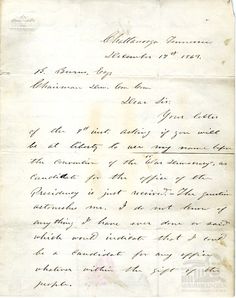 Chattanooga Tennessee
December 17th 1863.
B. Burns, Esq
Chairman Dem. Cen. Com.
Dear Sir:
Your letter
of the 7th inst. asking if you will
be at liberty to use my name before
the convention of the "War Democracy", as
candidate for the office of the
Presidency is just received.—The question
astonishes me. I do not know of
anything I have ever done or said
which would indicate that I could
be a candidate for any office
whatever within the gift of the
people.